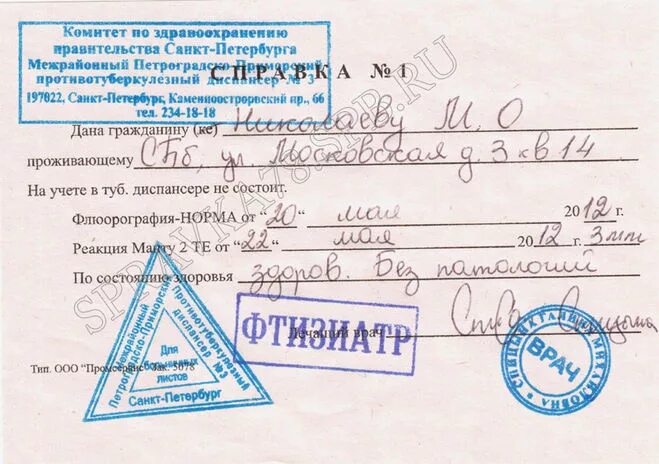 Комитет по здравоохранению
правительства Санкт-Петербурга
Межрайонный Петроградско-Приморский
противотуберкулезный диспансер № 3
197022, Санкт-Петербург, Каменноостровский пр., 66
тел. 234-18-18
СПРАВКА №1
Дана гражданину (ке) Николаеву М. О
проживающему СПб, ул. Московская д. 3 кв 14
На учете в туб. диспансере не состоит.
Флюорография-НОРМА от “20” мая 2012 г.
Реакция Манту 2 ТЕ от “22” мая 2012 г. 3мм
По состоянию здоровья здоров. Без патологий
Лечащий врач
ФТИЗИАТР
ВРАЧ
Межрайонный
Петроградско-Приморский
Противотуберкулезный
диспансер №3
Для
больничных
листов
Санкт-Петербург
Тип. ООО “Промсервис” Зак. 5078
SPRAVKA78.SPB.RU